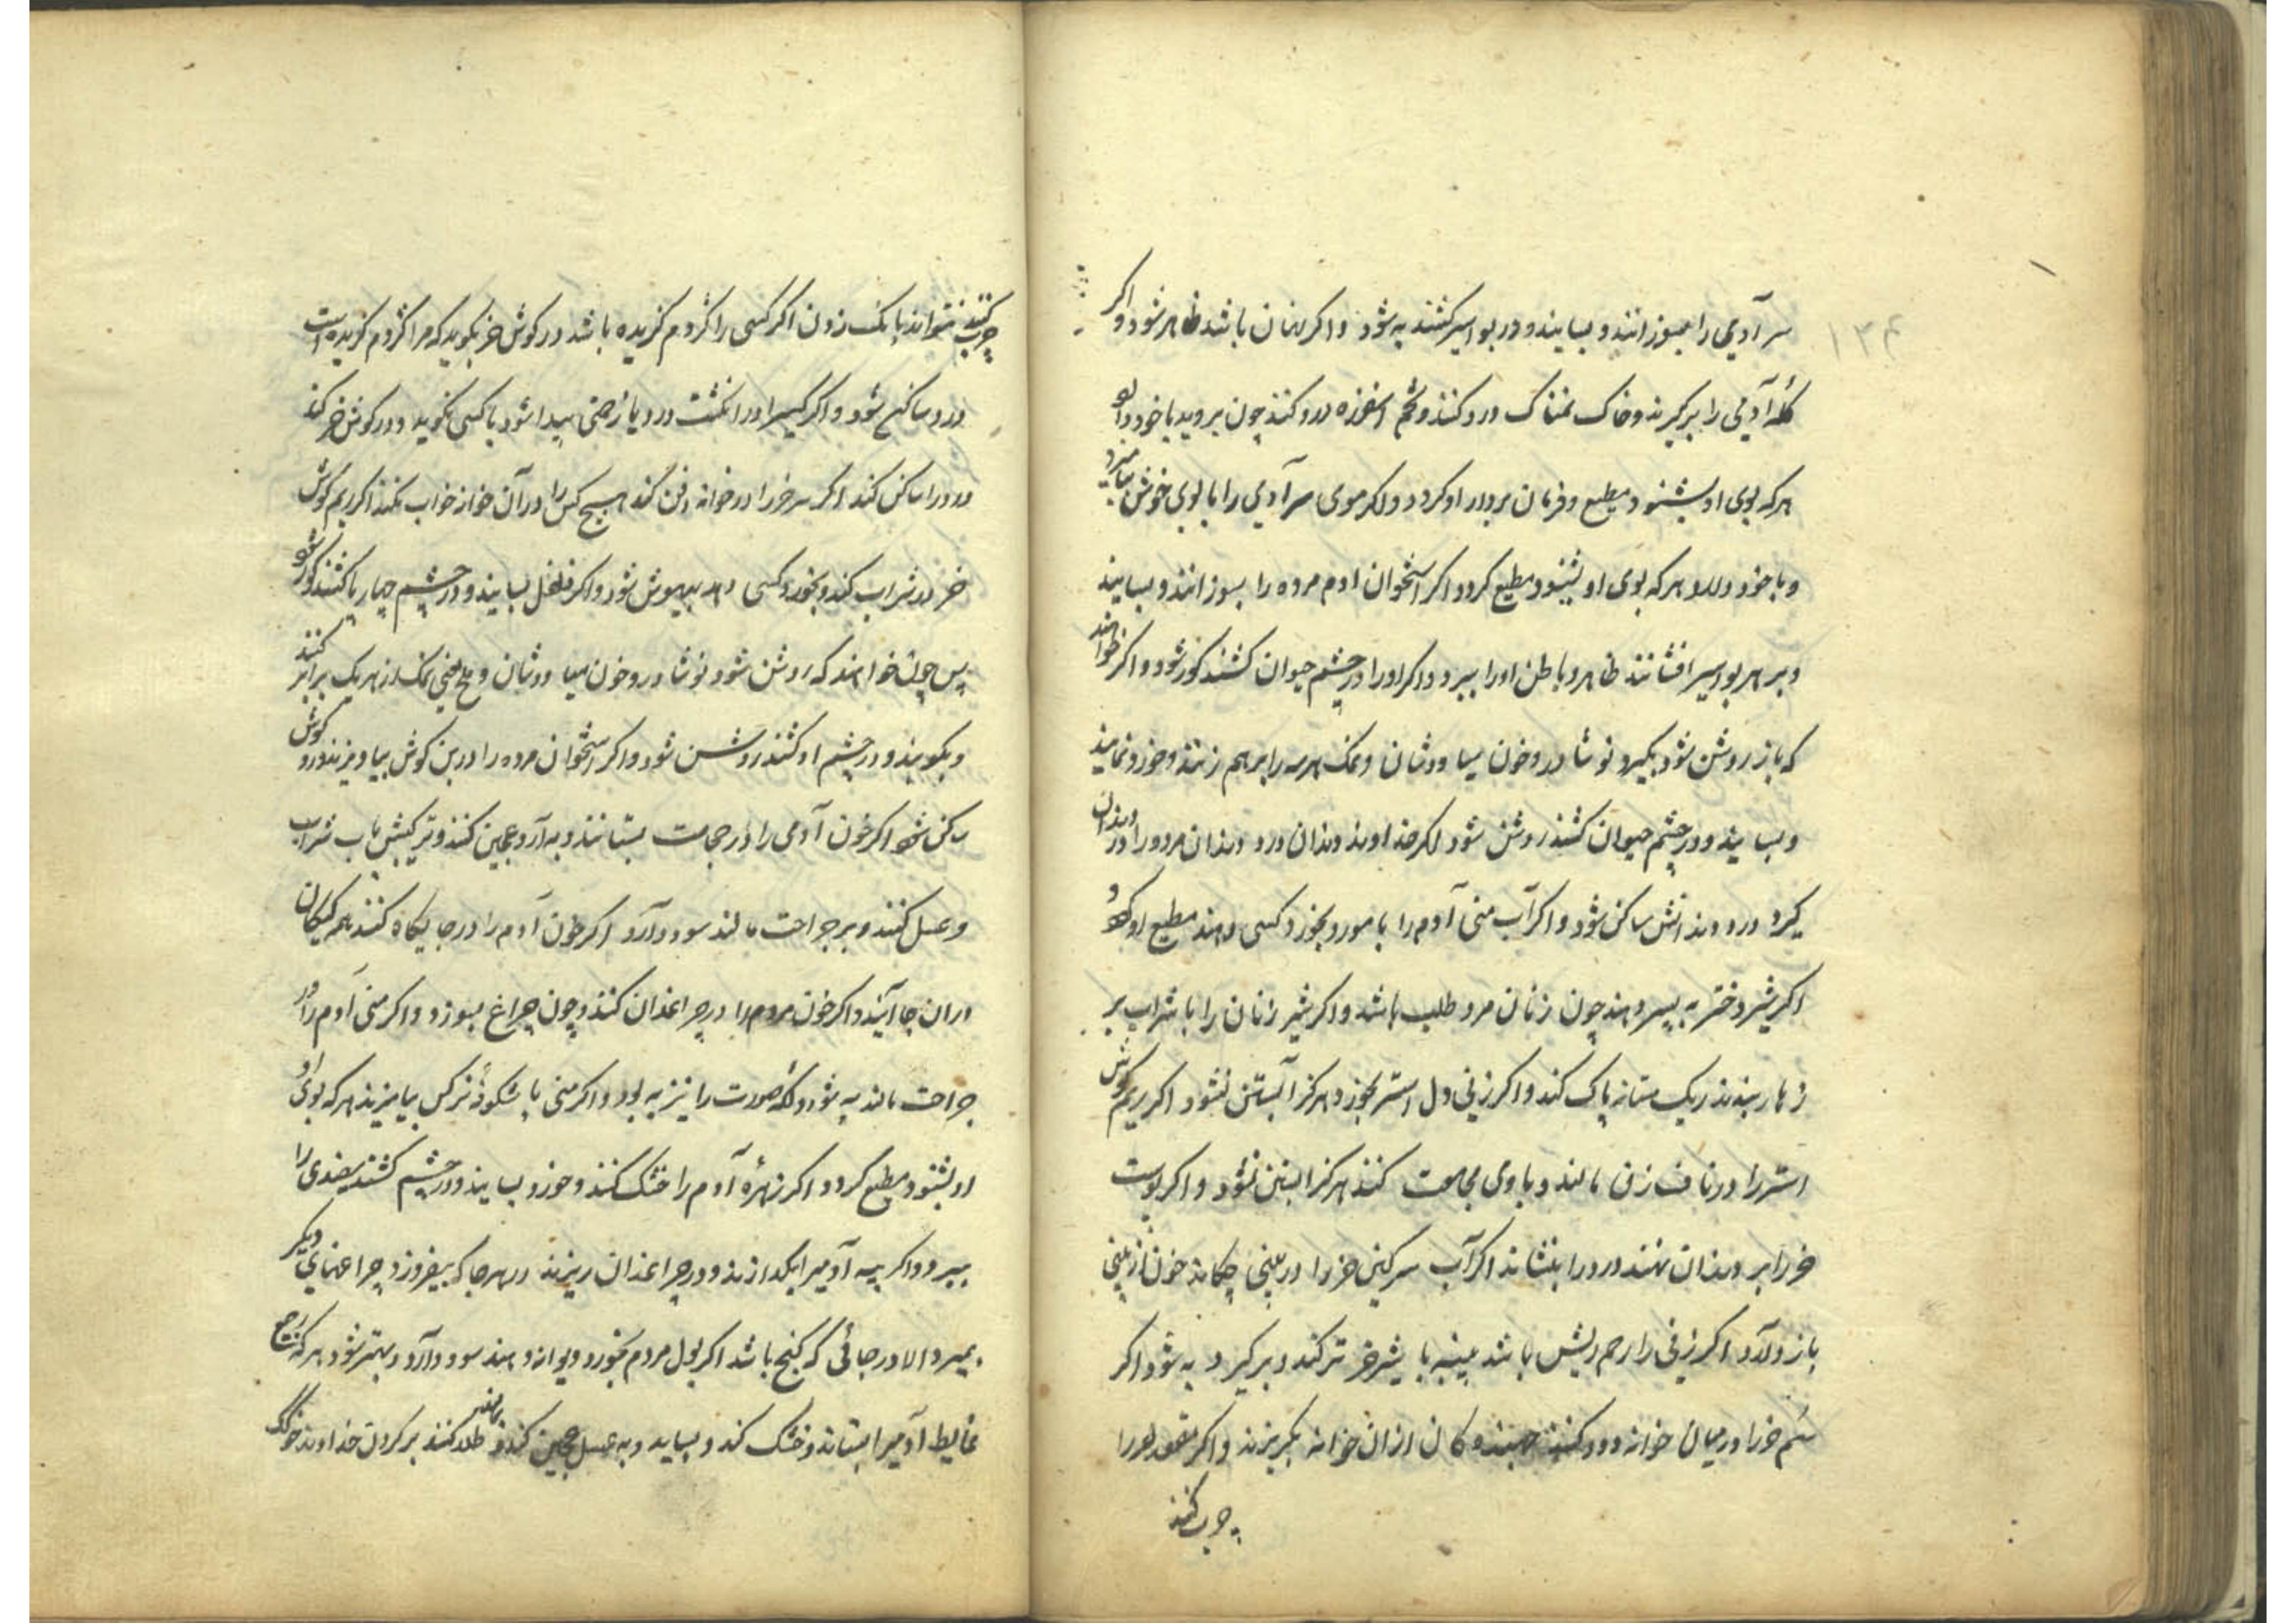 ۱۳۴
سر آدمی را بسوزانند و بسایند و در بواسیر کشند به شود و اکر نهان باشد ظاهر شود و اکر
کلهٔ آدمی را برکیرند و خاک نمناک درو کنند و تخم اسفزه درو کنند چون بروید با خود دارد
هرکه بوی او بشنود مطیع و فرمان بردار او کردد و اکر موی سر آدمی را با بوی خوش بیامیزد
و با خود دارد هرکه بوی او بشنود مطیع کردد اکر استخوان ادم مرده را بسوزانند و بسایند
و بر هر بواسیر افشانند ظاهر و باطن او را ببرد و اکر او را در چشم حیوان کشند کور شود و اکر خواهند
که باز روشن شود بکیرد نوشادر و خون سیاوشان و نمک هر سه را برهم زنند و خورد نمایند
و بسایند و در چشم حیوان کشند روشن شود اکر خداوند دندان درد دندان مرده را در دندان
کیرد درد دندانش ساکن شود و اکر آب منی آدم را با مورد بخورد کسی دهند مطیع او کردد
اکر شیر دختر به پسر دهند چون زنان مرد طلب باشد و اکر شیر زنان را با شراب بر
زهار بندند ریک مثانه پاک کند و اکر زنی دل استر بخورد هرکز آبستن نشود اکر ریم کوش
استر را در ناف زن مالند و با وی مجامعت کنند هرکز ابستن نشود و اکر پوست
خر را بر دندان نهند درد را بنشاند اکر آب سرکین خر را در بینی چکانند خون از بینی
باز دارد اکر زنی را رحم ریش باشد پنبه با شیر خر تر کند و برکیرد به شود اکر
سم خر را در میان خوانه دود کنند جنبندکان از ان خوانه بکریزند و اکر مقعد او را
چرب کنند
چرب کنند نتواند بانک زدن اکر کسی را کژدم کزیده باشد در کوش خر بکوید که مرا کژدم کزیده است
درد ساکن شود و اکر کسیرا در انکشت درد یا زحمتی پیدا شود با کسی نکوید و در کوش خر کند
درد را ساکن کند اکر سر خر را در خوانه دفن کند هیچ کس را در آن خوانه خواب نکند اکر ریم کوش
خر در شراب کند و بخورد کسی دهد بیهوش شود و اکر فلفل بسایند و در چشم چهار پا کشند کور شود
پس چون خواهند که روشن شود نوشادر و خون سیاوشان و ملح یعنی نمک از هر یک برابر کنند
و بکوبند و در چشم او کشند روشن شود و اکر استخوان مرده را در بن کوش بیاویزند درد کوش
ساکن شود اکر خون آدمی را در حجامت بستانند و به آرد عجین کنند و ترکیبش باب شراب
و عسل کنند و بر جراحت مالند سود دارد اکر خون آدم را در جایکاه کنند همه کیکان
در ان جا آیند و اکر خون مردم را در چراغدان کنند و چون چراغ بسوزد و اکر منی آدم را در
جراحت مالند به شود و کلهٔ صورت را نیز به بود و اکر منی با شکوفهٔ نرکس بیامیزند هرکه بوی او
او بشنود مطیع کردد اکر زهرهٔ آدم را خشک کنند و خورد بسایند و در چشم کشند سفیدی را
ببرد و اکر پیه آدمیرا بکدازند و در چراغدان ریزند در هر جا که بیفروزد چراغهای دیکر
بمیرد الا در جائی که کنج باشد اکر بول مردم بخورد دیوانه دهند سود دارد و بهتر شود هرکه رجیع
غایط آدمیرا بستاند و خشک کند و بساید و به عسل عجین کند و طلا کنند بر کردن خداوند خوک